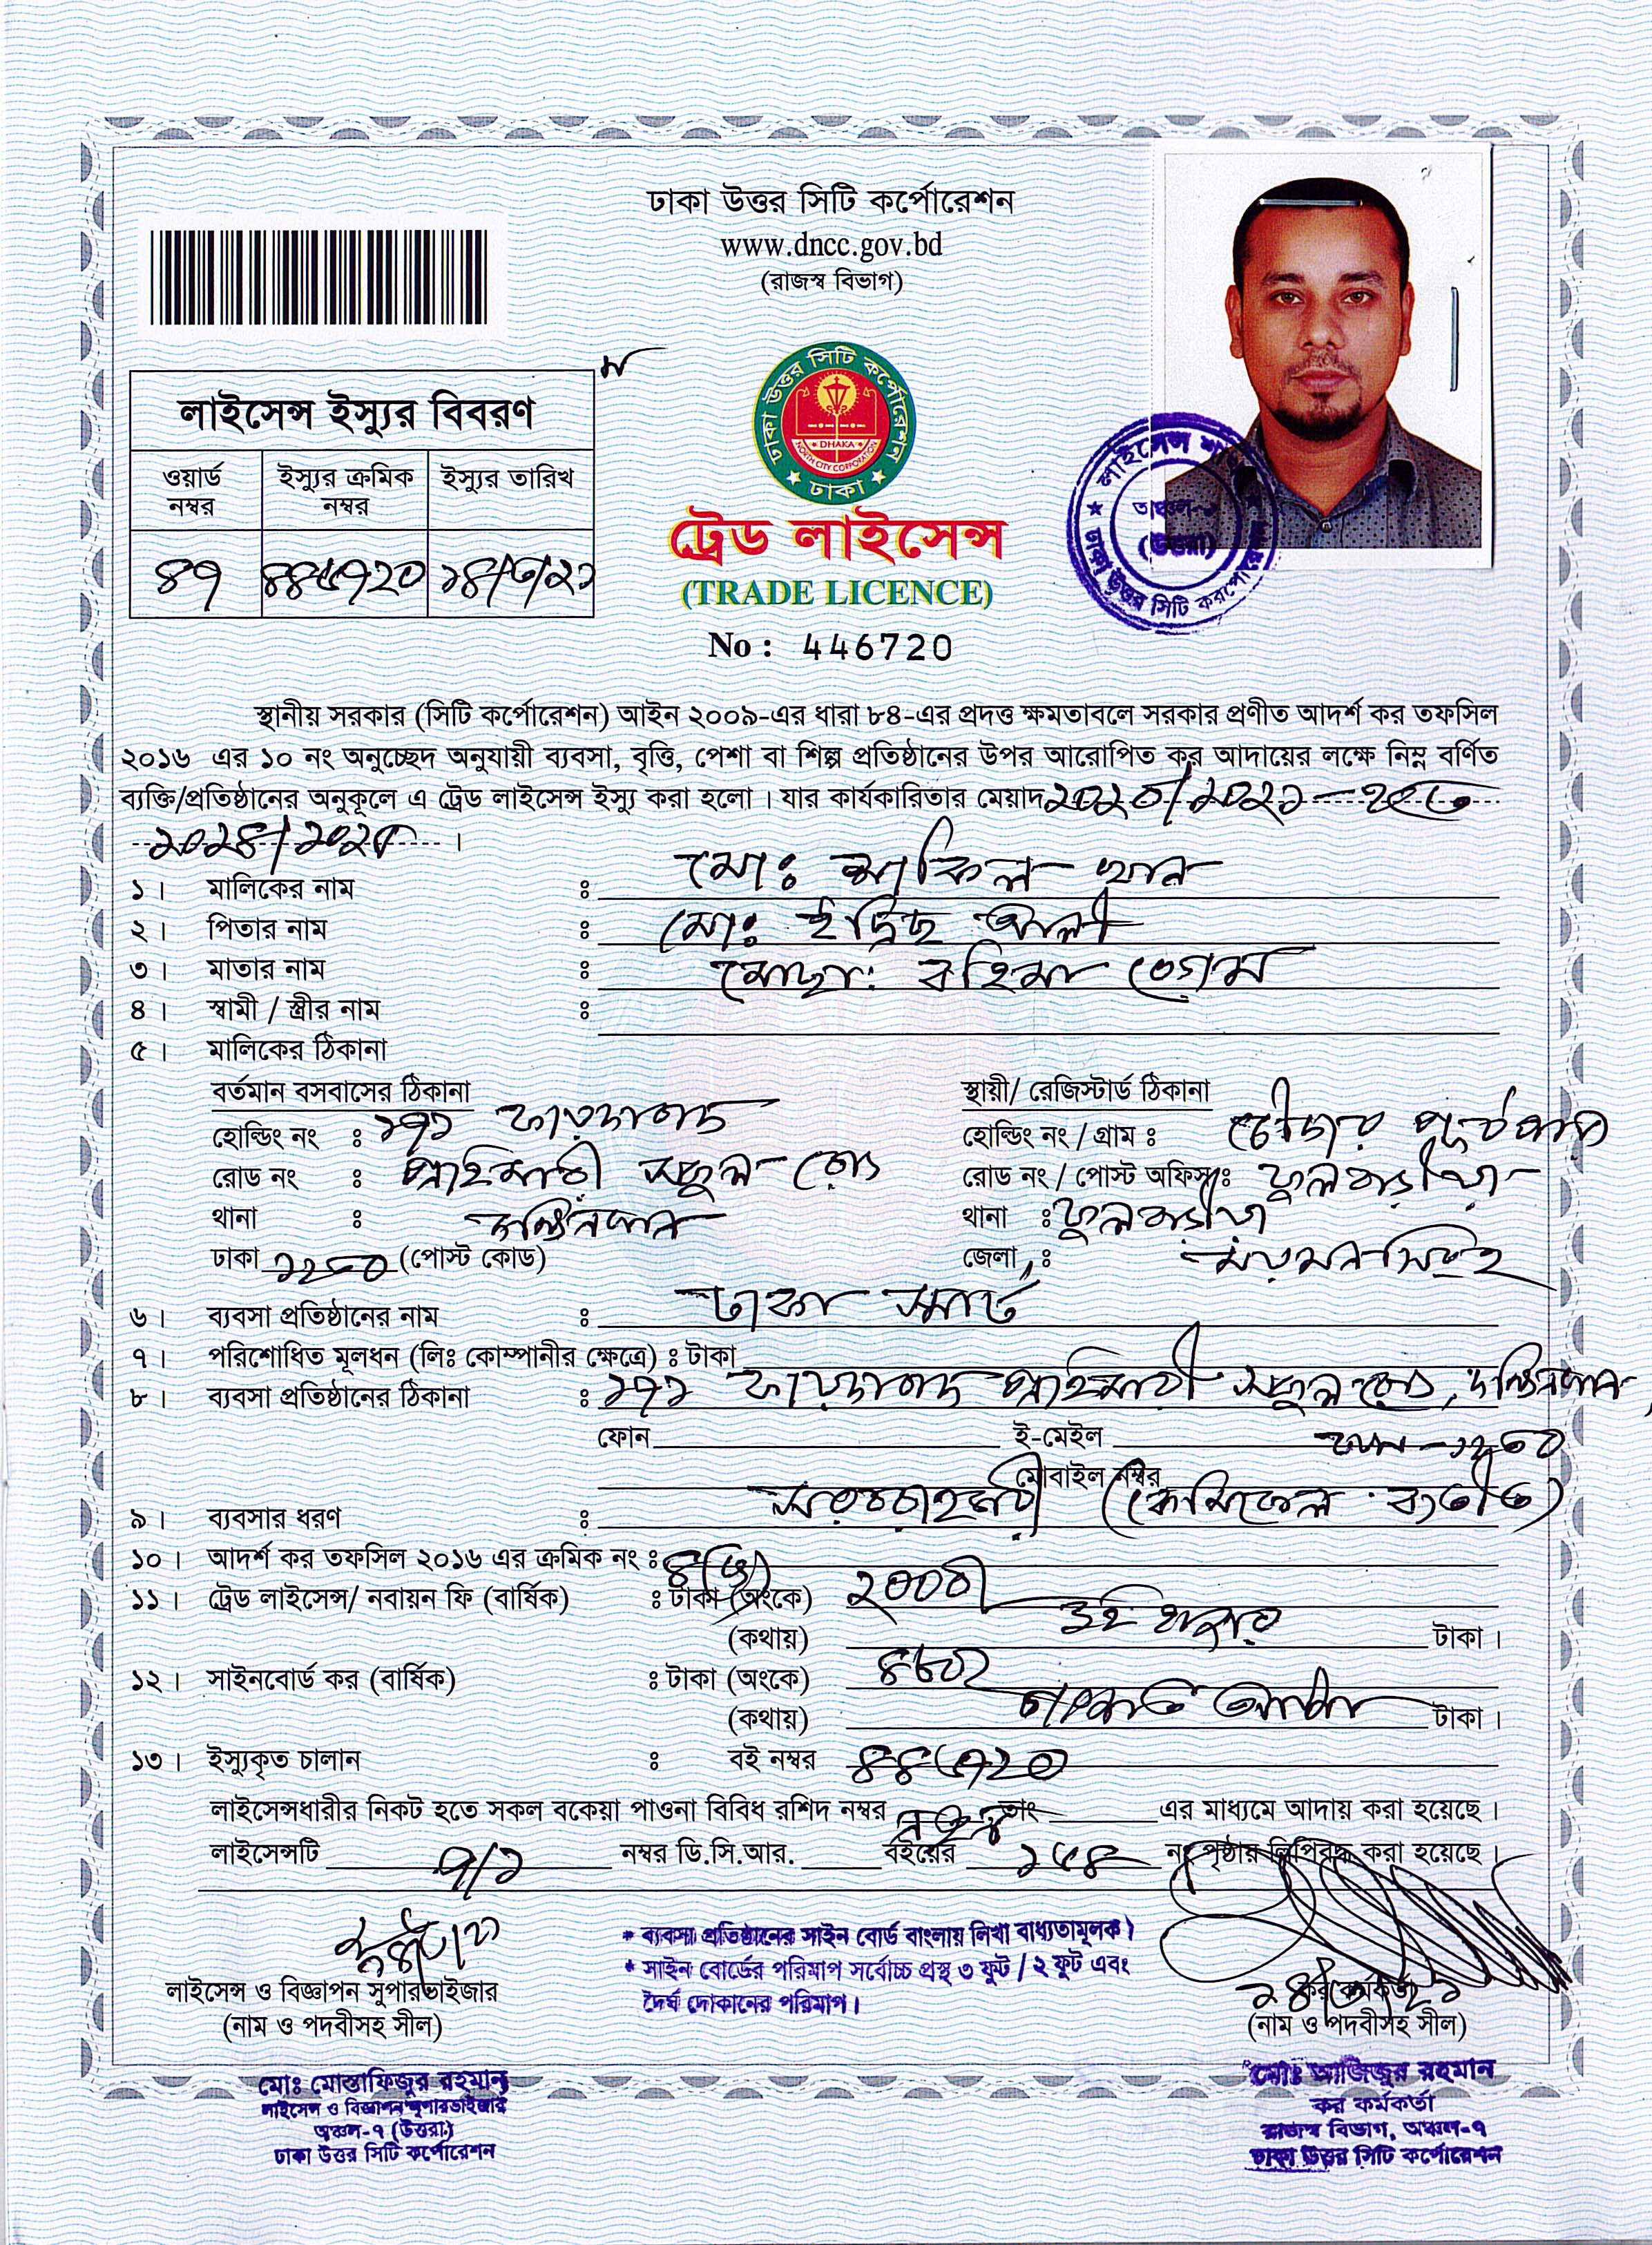 ঢাকা উত্তর সিটি কর্পোরেশন
www.dncc.gov.bd
(রাজস্ব বিভাগ)
লাইসেন্স ইস্যুর বিবরণ
ওয়ার্ড নম্বর ইস্যুর ক্রমিক নম্বর ইস্যুর তারিখ
৪৭ ৪৪৬৭২০ ১৪/৩/২১
ঢাকা উত্তর সিটি কর্পোরেশন
DHAKA
NORTH CITY CORPORATION
ঢাকা
ট্রেড লাইসেন্স
(TRADE LICENCE)
No : 446720
লাইসেন্স
(উত্তরা)
ঢাকা উত্তর সিটি করপোরেশন
স্থানীয় সরকার (সিটি কর্পোরেশন) আইন ২০০৯-এর ধারা ৮৪-এর প্রদত্ত ক্ষমতাবলে সরকার প্রণীত আদর্শ কর তফসিল
২০১৬ এর ১০ নং অনুচ্ছেদ অনুযায়ী ব্যবসা, বৃত্তি, পেশা বা শিল্প প্রতিষ্ঠানের উপর আরোপিত কর আদায়ের লক্ষে নিম্ন বর্ণিত
ব্যক্তি/প্রতিষ্ঠানের অনুকূলে এ ট্রেড লাইসেন্স ইস্যু করা হলো। যার কার্যকারিতার মেয়াদ ২০২০/২০২১ - হইতে
২০২৪/২০২৫ ।
১। মালিকের নাম ঃ মোঃ শাকিল খান
২। পিতার নাম ঃ মোঃ ইদ্রিছ আলী
৩। মাতার নাম ঃ মোছাঃ রহিমা বেগম
৪। স্বামী / স্ত্রীর নাম ঃ
৫। মালিকের ঠিকানা
বর্তমান বসবাসের ঠিকানা স্থায়ী/ রেজিস্টার্ড ঠিকানা
হোল্ডিং নং ঃ ১৭১ ফায়দাবাদ হোল্ডিং নং / গ্রাম ঃ
রোড নং ঃ প্রাইমারী স্কুল রোড রোড নং / পোস্ট অফিসঃ ফুলবাড়ীয়া
থানা ঃ দক্ষিনখান থানা ঃ ফুলবাড়ীয়া
ঢাকা ১২৩০ (পোস্ট কোড) জেলা ঃ ময়মনসিংহ
৬। ব্যবসা প্রতিষ্ঠানের নাম ঃ ঢাকা স্মার্ট
৭। পরিশোধিত মূলধন (লিঃ কোম্পানীর ক্ষেত্রে) ঃ টাকা
৮। ব্যবসা প্রতিষ্ঠানের ঠিকানা ঃ ১৭১ ফায়দাবাদ প্রাইমারী স্কুল রোড, দক্ষিনখান,
ফোন ই-মেইল ঢাকা - ১২৩০
মোবাইল নম্বর
৯। ব্যবসার ধরণ ঃ সরবরাহকারী (কেমিকেল ব্যতীত)
১০। আদর্শ কর তফসিল ২০১৬ এর ক্রমিক নং ঃ
১১। ট্রেড লাইসেন্স/ নবায়ন ফি (বার্ষিক) ঃ টাকা (অংকে) ২০০০/
(কথায়) দুই হাজার টাকা।
১২। সাইনবোর্ড কর (বার্ষিক) ঃ টাকা (অংকে)
(কথায়) টাকা।
১৩। ইস্যুকৃত চালান ঃ বই নম্বর ৪৪৬৭২০
লাইসেন্সধারীর নিকট হতে সকল বকেয়া পাওনা বিবিধ রশিদ নম্বর নতুন তাং এর মাধ্যমে আদায় করা হয়েছে।
লাইসেন্সটি ৭/১ নম্বর ডি.সি.আর. বইয়ের ১৬৪ নং পৃষ্ঠায় লিপিবদ্ধ করা হয়েছে।
* ব্যবসা প্রতিষ্ঠানের সাইন বোর্ড বাংলায় লিখা বাধ্যতামূলক।
* সাইন বোর্ডের পরিমাপ সর্বোচ্চ প্রস্থ ৩ ফুট / ২ ফুট এবং
দৈর্ঘ দোকানের পরিমাপ।
লাইসেন্স ও বিজ্ঞাপন সুপারভাইজার
(নাম ও পদবীসহ সীল)
কর কর্মকর্তা
(নাম ও পদবীসহ সীল)
মোঃ মোস্তাফিজুর রহমান
লাইসেন্স ও বিজ্ঞাপন সুপারভাইজার
অঞ্চল-৭ (উত্তরা)
ঢাকা উত্তর সিটি কর্পোরেশন
মোঃ আজিজুর রহমান
কর কর্মকর্তা
রাজস্ব বিভাগ, অঞ্চল-৭
ঢাকা উত্তর সিটি কর্পোরেশন